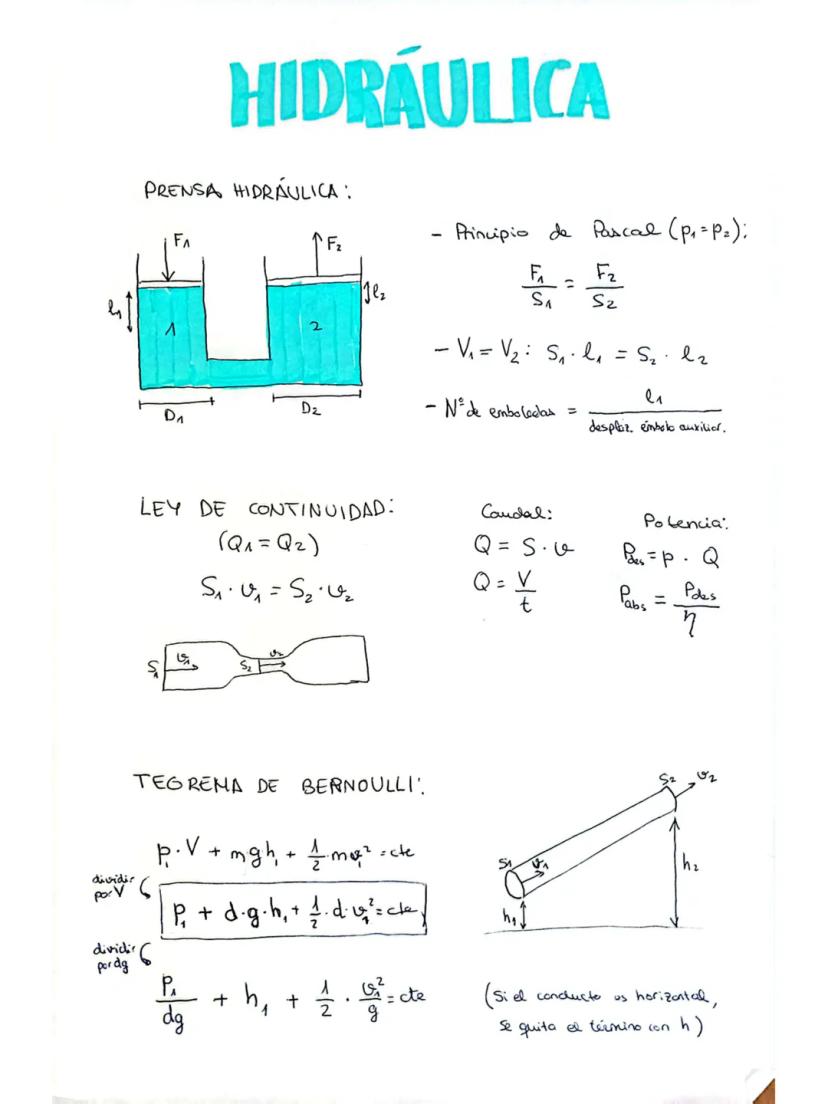 HIDRÁULICA
PRENSA HIDRÁULICA:
F1
F2
l1
l2
1
2
D1
D2
- Principio de Pascal (p1=p2):
F1/S1 = F2/S2
- V1 = V2: S1 · l1 = S2 · l2
- Nº de emboladas = l1 / desplaz. émbolo auxiliar.
LEY DE CONTINUIDAD:
(Q1 = Q2)
S1 · v1 = S2 · v2
S1
v1
S2
v2
Caudal:
Q = S · v
Q = V/t
Potencia:
Pdes = p · Q
Pabs = Pdes/η
TEOREMA DE BERNOULLI:
p1 · V + mgh1 + 1/2 mv1² = cte
dividir
por V
P1 + d·g·h1 + 1/2 · d·v1² = cte
dividir
por dg
P1/dg + h1 + 1/2 · v1²/g = cte
S1
v1
S2
v2
h1
h2
(Si el conducto es horizontal,
se quita el término con h)